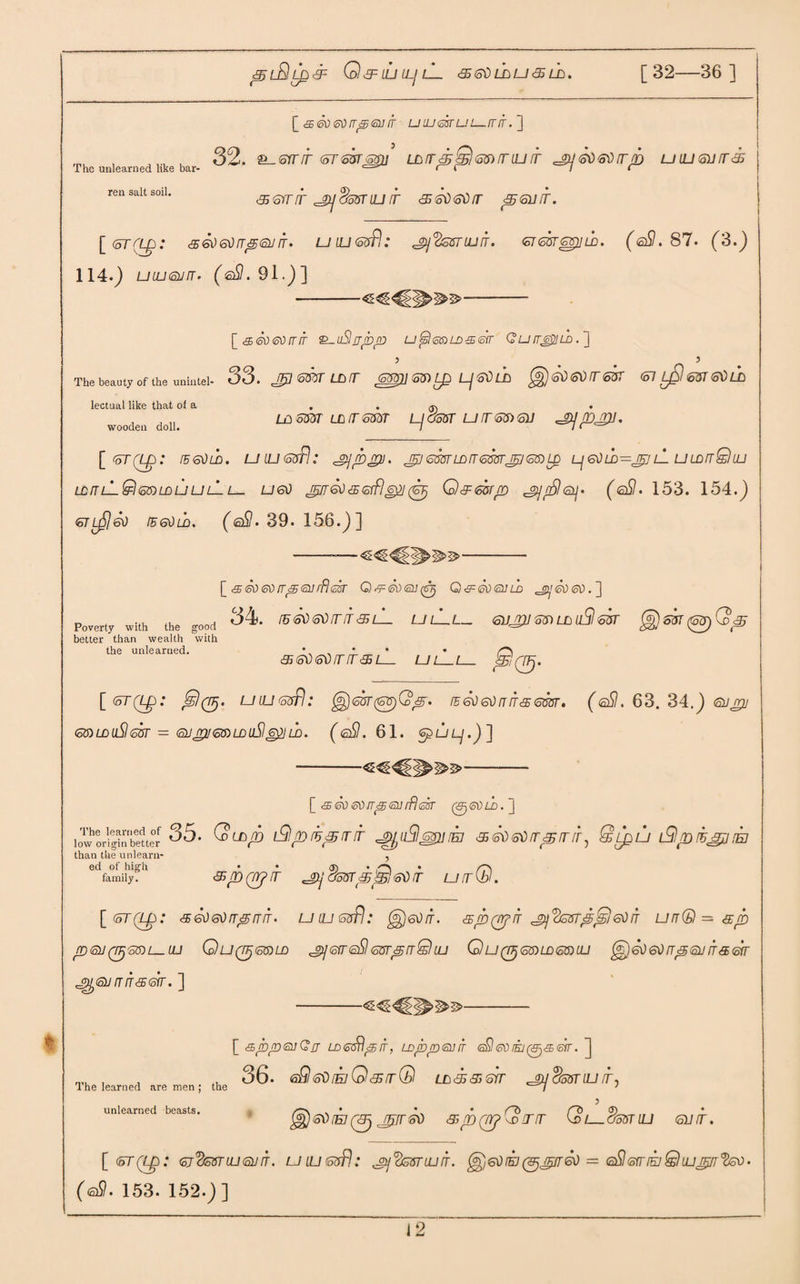 தமிழ்ச் செய்யுட் கலம்பகம். [32—36]
[ கல்லாதவர் பயன்படார். ]
The unlearned like barren salt soil.
32. உளர் என்னு' மாத்திரையர் அல்லாற் பயவாக்
களர் அனையர் கல்லா தவர்.
[ எழு: கல்லாதவர். பயனி: அனையர். என்னும். (வி. 87. (3.)
114.) பயவா. (வி. 91.)]
[ கல்லார் உயிரற்ற பதிமைகள் போலும். ]
The beauty of the unintellectual like that of a wooden doll.
33. நுண் மா ணுழை புலம் இல்லான்' எழினலம்'
மண் மாண் புனை பாவை அற்று.
[ எழு: நலம். பயனி: அற்று. நுண்மாண்நுழை புலம்=நுட்பமாகிய
மாட்சிமைப்பட்ட பல நூல்களினுஞ் சென்ற அறிவு. (வி. 153. 154.)
எழில் நலம். (வி. 39. 156.)]
[ கல்லாதவரின் செல்வஞ் செல்வம் அல்ல. ]
Poverty with the good better than wealth with the unlearned.
34. நல்லார்கட் பட்ட வறுமையின் இன்னாதே
கல்லார்கட் பட்ட திரு.
[ எழு: திரு. பயனி: இன்னாதே. நல்லார்கண். (வி. 63. 34.) வறு
மையின் = வறுமையினும். (வி. 61. ஒப்பு.)]
[ கல்லாதவரின் குலம். ]
The learned of low origin better than the unlearned of high family.
35. மேற் பிறந்தார் ஆயினுங் கல்லாதார், கீழ்ப் பிறந்துங்
கற்றார் அனைத்திலர் பாடு.
[ எழு: கல்லாதார். பயனி: இலர். கற்றார் அனைத்திலர் பாடு = கற்
றவருடைய பெருமை அளவினதாகிய பெருமையை இல்லாதவர்கள்
ஆவார்கள். ]
[ கற்றவரே மனிதர், மற்றவர் விலங்குகள். ]
The learned are men; the unlearned beasts.
36. விலங்கொடு மக்கள் அனையர்,
இலங்கு நூல் கற்றாரோ டேனைய வர்.
[ எழு: ஏனையவர். பயனி: அனையர். இலங்குநூல் = விளங்கியநூலை.
(வி. 153. 152.)]
12